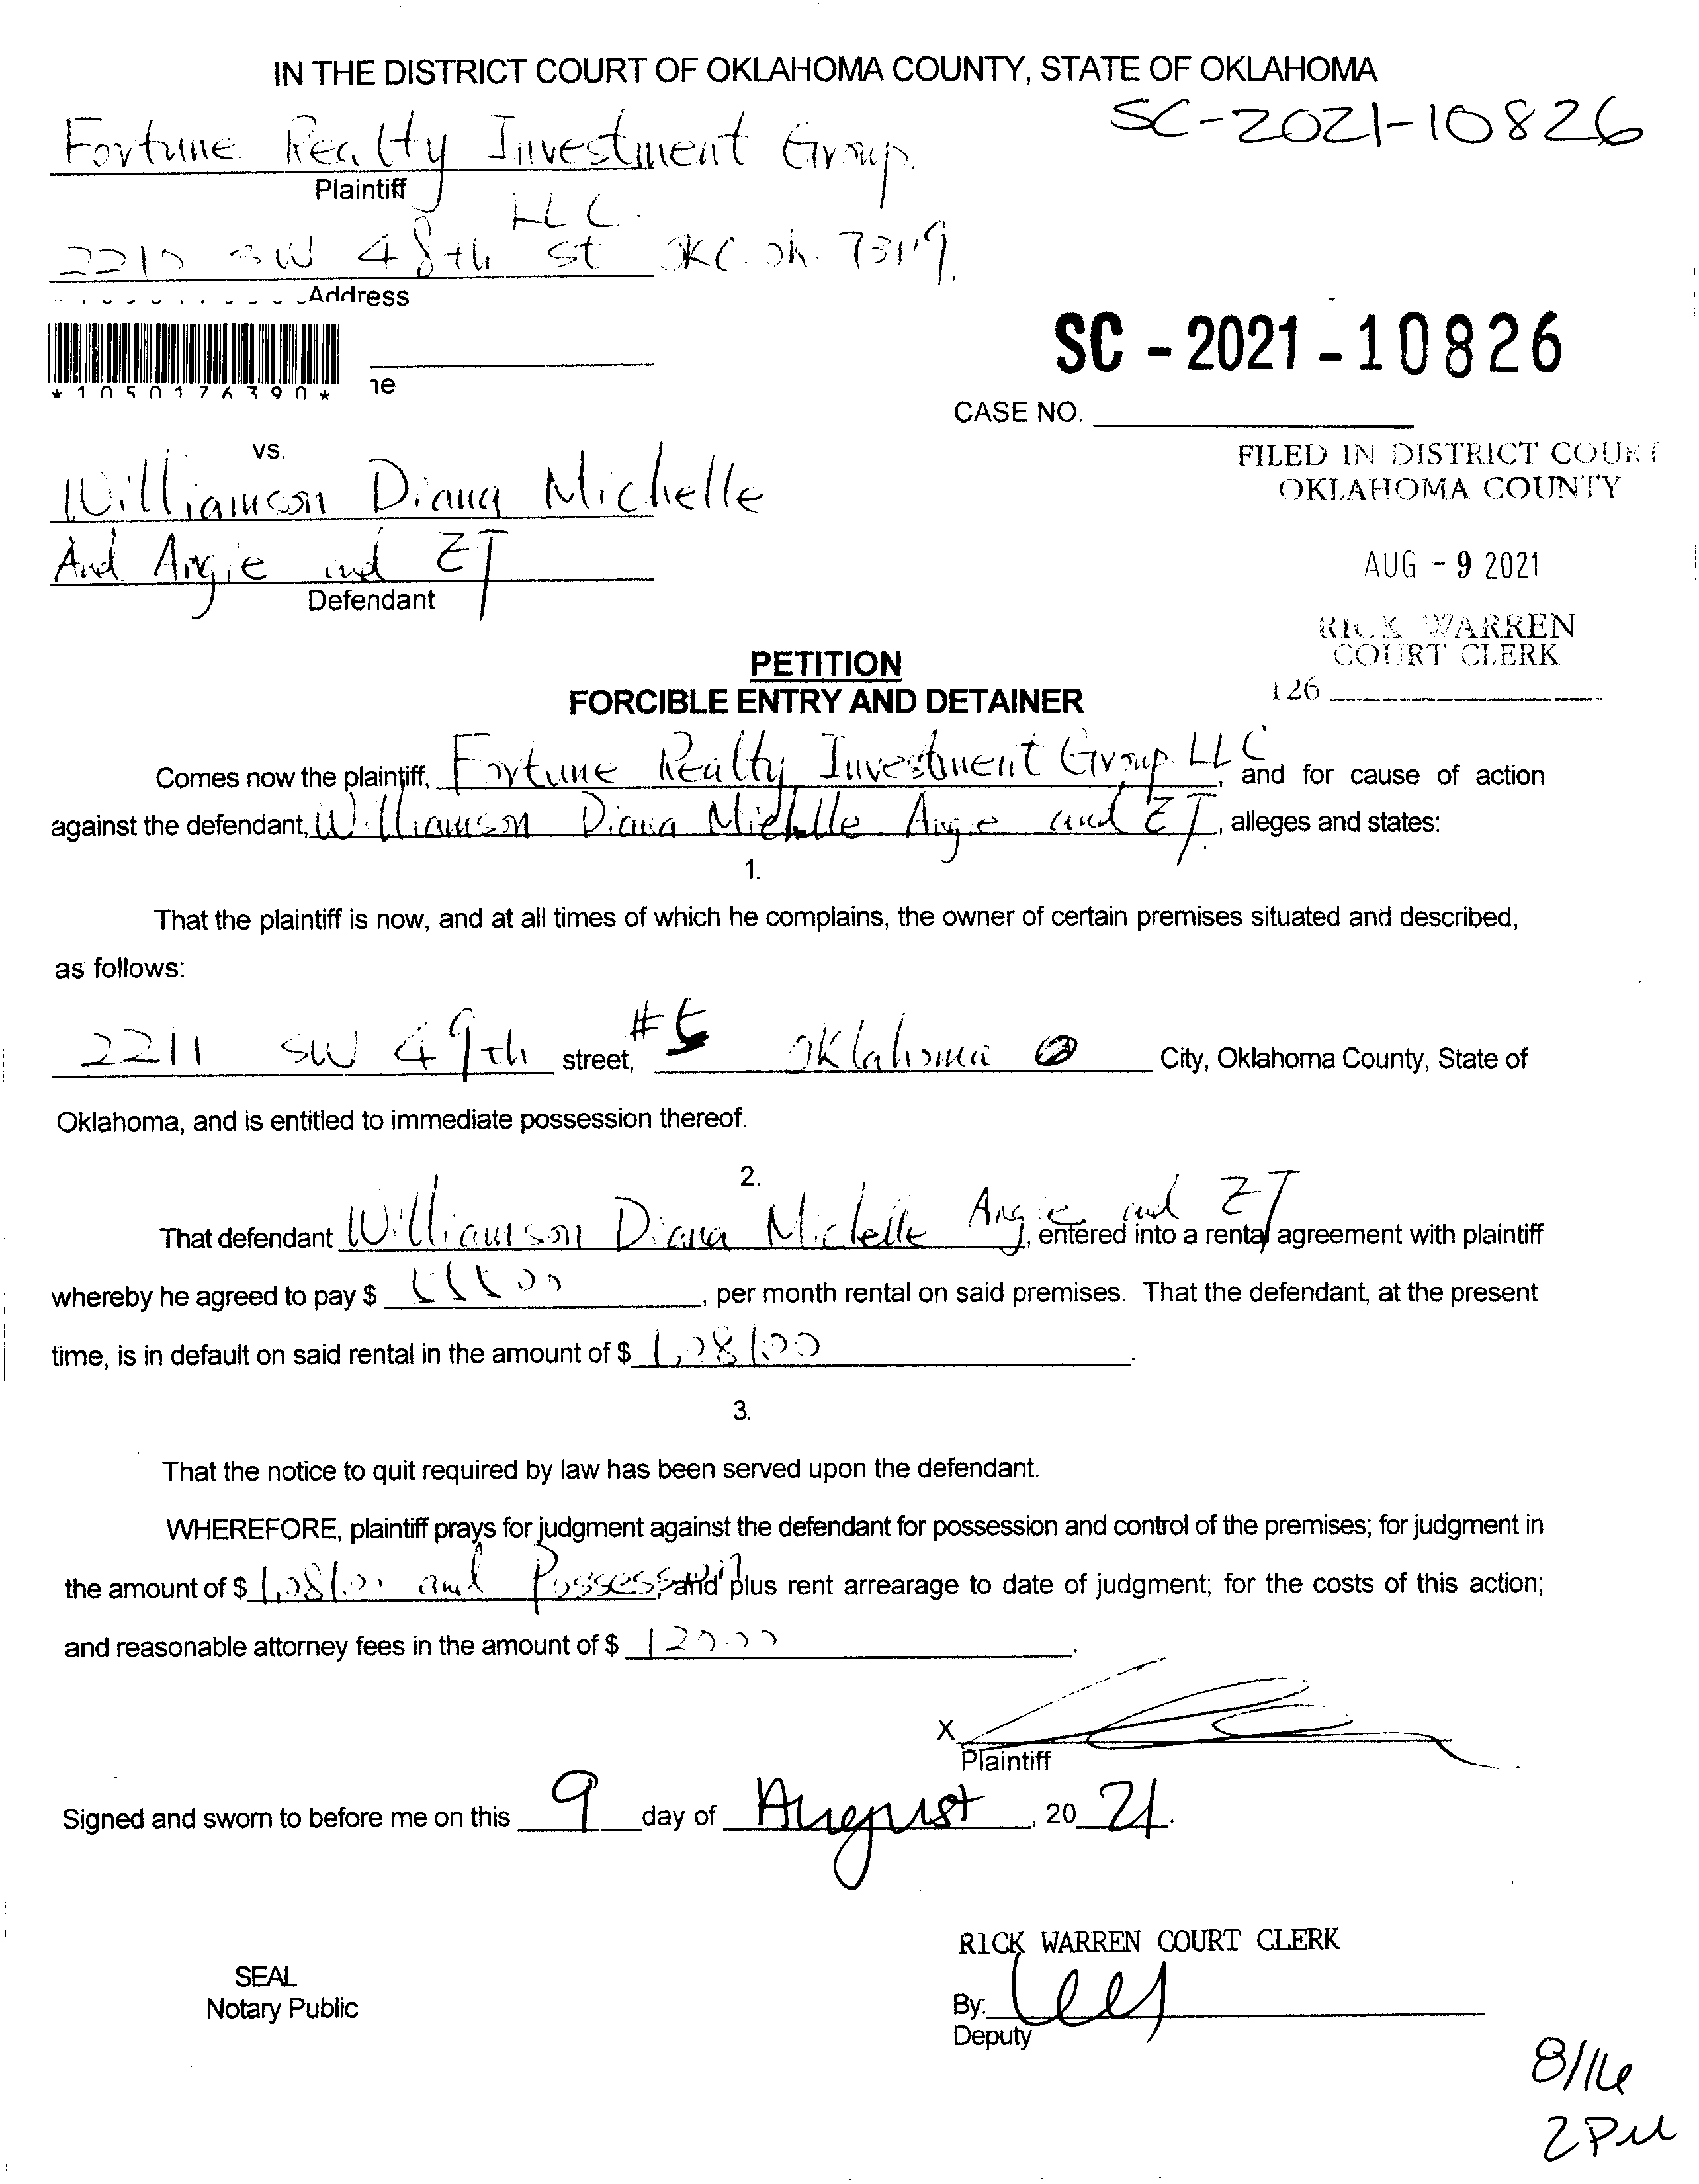 IN THE DISTRICT COURT OF OKLAHOMA COUNTY, STATE OF OKLAHOMA
SC-2021-10826
Fortune Realty Investment Group
Plaintiff
LLC.
2210 SW 48th St OKC. Ok. 73119.
Address
*1050176390*
ne
SC - 2021 - 10826
CASE NO.
vs.
Williamson Diana Michelle
And Angie and EJ
Defendant
FILED IN DISTRICT COURT
OKLAHOMA COUNTY
AUG - 9 2021
RICK WARREN
COURT CLERK
126
PETITION
FORCIBLE ENTRY AND DETAINER
Comes now the plaintiff, Fortune Realty Investment Group LLC, and for cause of action
against the defendant, Williamson Diana Michelle Angie and EJ, alleges and states:
1.
That the plaintiff is now, and at all times of which he complains, the owner of certain premises situated and described,
as follows:
2211 SW 49th street, #5 Oklahoma City, Oklahoma County, State of
Oklahoma, and is entitled to immediate possession thereof.
2.
That defendant Williamson Diana Michelle Angie and EJ, entered into a rental agreement with plaintiff
whereby he agreed to pay $ , per month rental on said premises. That the defendant, at the present
time, is in default on said rental in the amount of $ 1,081.00.
3.
That the notice to quit required by law has been served upon the defendant.
WHEREFORE, plaintiff prays for judgment against the defendant for possession and control of the premises; for judgment in
the amount of $ 1,081.00 and Possession, and plus rent arrearage to date of judgment; for the costs of this action;
and reasonable attorney fees in the amount of $ 120.00.
X
Plaintiff
Signed and sworn to before me on this 9 day of August, 20 21.
RICK WARREN COURT CLERK
SEAL
Notary Public
By:
Deputy
8/16
2 PM